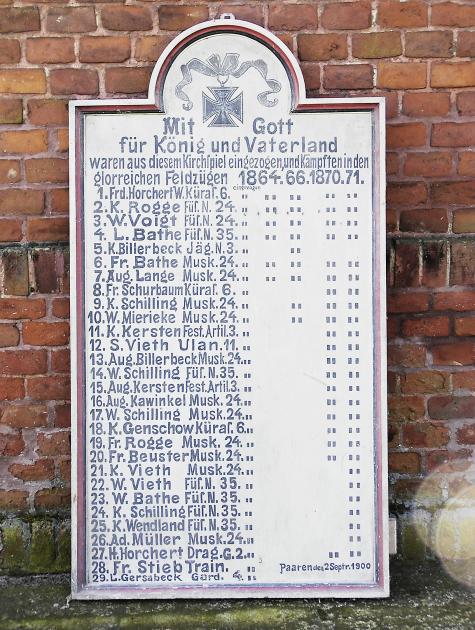 Mit Gott
für König und Vaterland
waren aus diesem Kirchspiel eingezogen, und Kämpften in den
glorreichen Feldzügen 1864. 66. 1870. 71.
1. Frd. Horchert W. Küraf. 6. "
2. K. Rogge Füf. N. 24. " " " " "
3. W. Voigt Füf. N. 24. " " " " "
4. L. Bathe Füf. N. 35. " " " " "
5. K. Billerbeck Jäg. N. 3. " "
6. Fr. Bathe Musk. 24. " " " " "
7. Aug. Lange Musk. 24. " " " " "
8. Fr. Schurbaum Küraf. 6. " " "
9. K. Schilling Musk. 24. " " " "
10. W. Mierieke Musk. 24. " " " "
11. K. Kersten Fest. Artil. 3. " " "
12. S. Vieth Ulan. 11. " " "
13. Aug. Billerbeck Musk. 24. " " "
14. W. Schilling Füf. N. 35. " " "
15. Aug. Kersten Fest. Artil. 3. " " "
16. Aug. Kawinkel Musk. 24. " " "
17. W. Schilling Musk. 24. " " "
18. K. Genschow Küraf. 6. " " "
19. Fr. Rogge Musk. 24. " " "
20. Fr. Beuster Musk. 24. " " "
21. K. Vieth Musk. 24. " "
22. W. Vieth Füf. N. 35. " "
23. W. Bathe Füf. N. 35. " "
24. K. Schilling Füf. N. 35. " "
25. K. Wendland Füf. N. 35. " "
26. Ad. Müller Musk. 24. " "
27. H. Horchert Drag. G. 2. " " "
28. Fr. Stieb Train. " Paaren den 2 Septr. 1900
29. L. Gersabeck Gard. 4. "